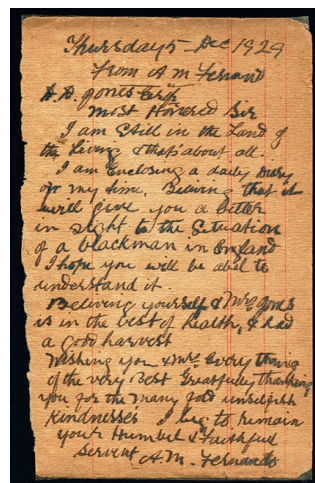 Thursday 5 Dec 1929
From A M Fernand
A.A. Jones Esqr
Most Honered Sir
I am still in the Land of
the Living & thats about all.
I am Enclosing a daily Diary
of my time, Beliving that it
will give you a better
in sight to the Situation
of a blackman in England
I hope you will be abel to
understand it.
Beliving yourself & Mrs Jones
is in the best of health, & had
a good harvest
Wishing you & Mrs Every thing
of the very Best Greatfuley thanking
you for the many fold unselfish
Kindnesses I beg to remain
your Humbel & Faithful
Servent A.M. Fernando